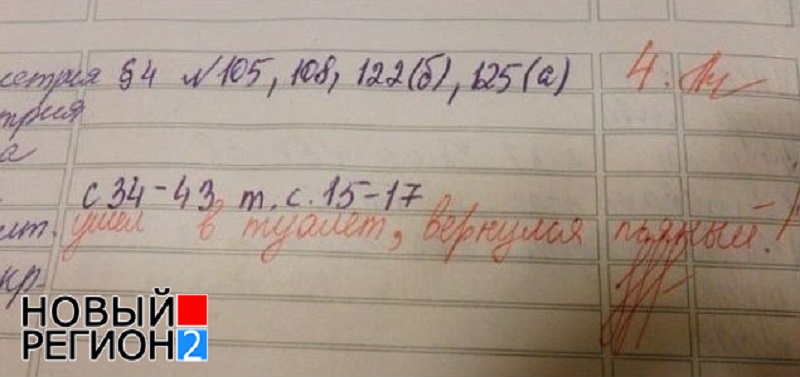 сетрия §4 №105, 108, 122(б), 125(а) 4.
трия
а
с 34-43, т. с. 15-17
ушел в туалет, вернулся пьяный!
кр.
НОВЫЙ
РЕГИОН 2